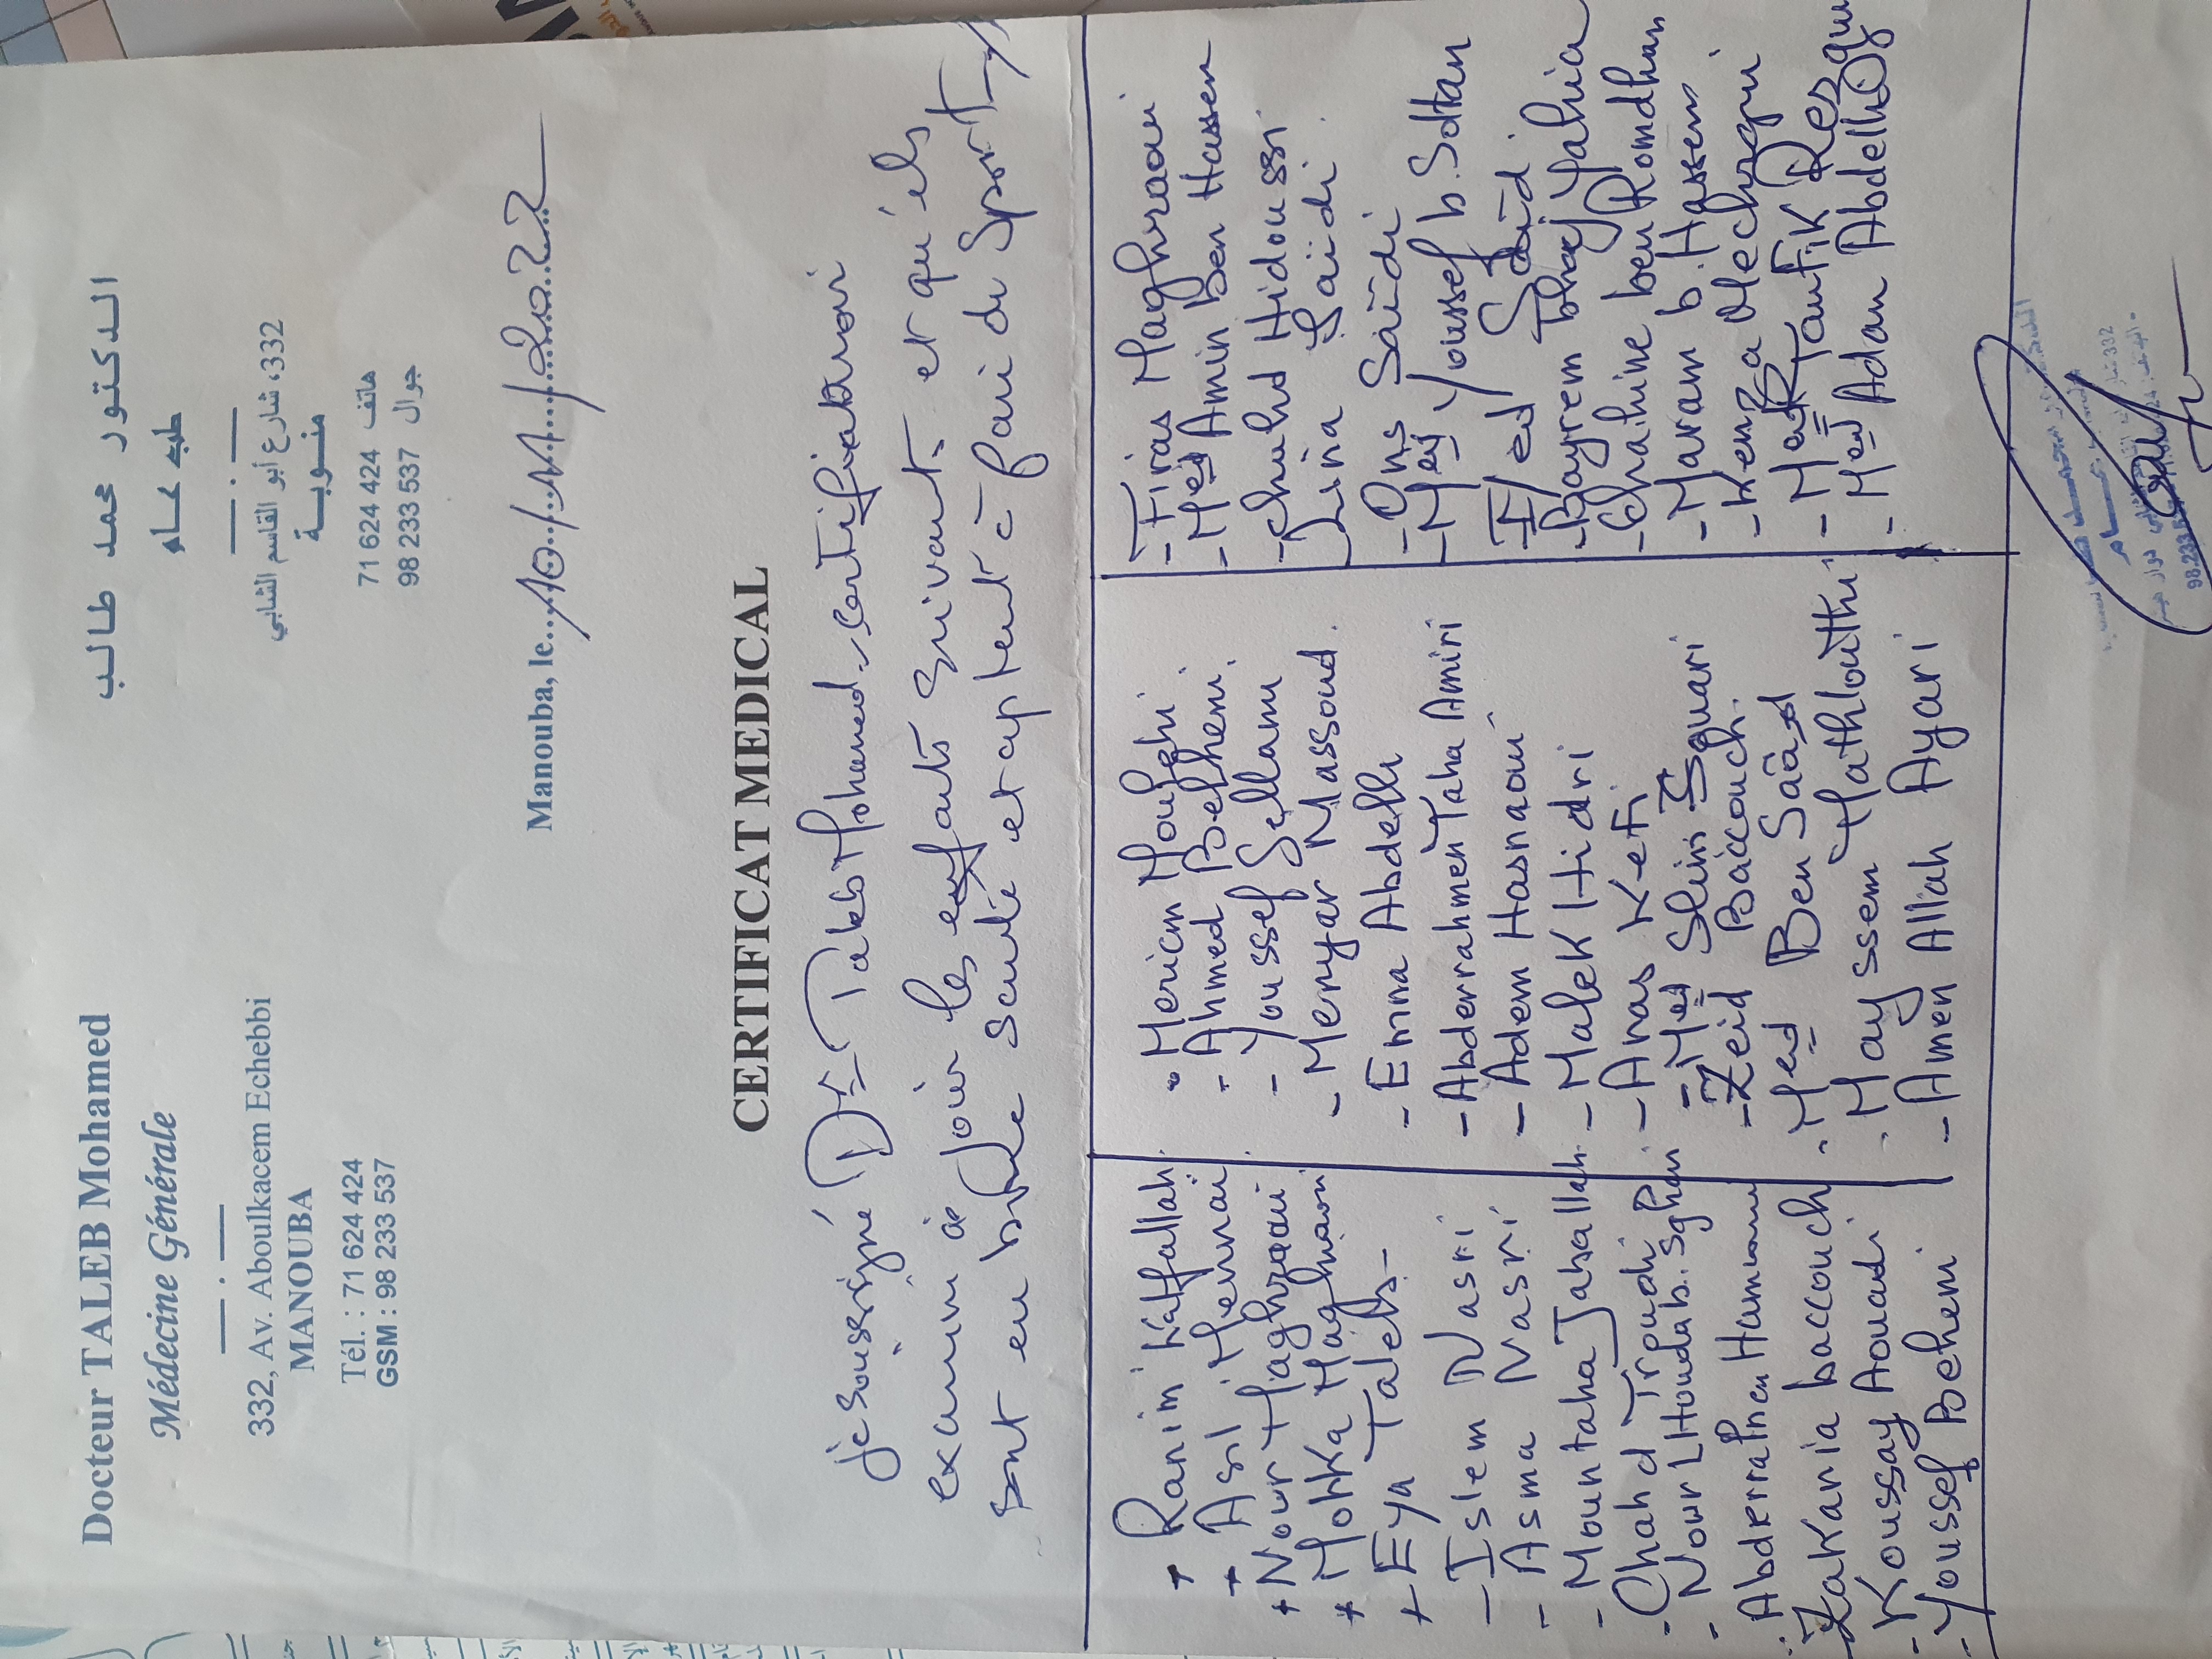 Docteur TALEB Mohamed
Médecine Générale
332, Av. Aboulkacem Echebbi
MANOUBA
Tél. : 71 624 424
GSM : 98 233 537
الدكتور محمد طالب
طب عام
332، شارع أبو القاسم الشابي
منوبة
هاتف 71 624 424
جوال 98 233 537
Manouba, le 10/11/2022
CERTIFICAT MEDICAL
je soussigné Dr Taleb Mohamed certifie avoir
examiné ce jour les enfants suivants et qu'ils
sont en bonne santé et apte à faire du Sport
+ Ranim Kalfallah
+ Asl Mennai
+ Nour Maghraoui
+ Mohka Maghraoui
+ Eya Taleb
- Islem Nasri
- Asma Nasri
- Mountaha Jaballah
- Chahd Troudi
- Nour LHouda b. Sghair
- Abderrahmen Hammami
- Zakaria baccouch
- Koussay Aouadi
- Youssef Beheni
Meriem
- Ahmed Belheni
- Youssef Sellami
- Menyar Massoud
- Emna Abdelli
- Abderrahmen Taha Amiri
- Adem Hasnaoui
- Malek Hidri
- Anas Kefi
- Med Slim
- Zeid Baccouch
- Med Ben Saad
- Mayssem Mathlouthi
- Amen Allah Ayari
- Firas Maghraoui
- Med Amin Ben Hassen
- Chahd Hidoussi
Lina Saidi
- Ons Saidi
- Med Youssef b. Soltan
- Ied Saidi
- Bayrem bhaj Yahia
- Chahine ben Romdhan
- Maram b. Hassen
- Kenza Mechregui
- Med Taufik
- Med Adam Abdelli
332
98.233.5